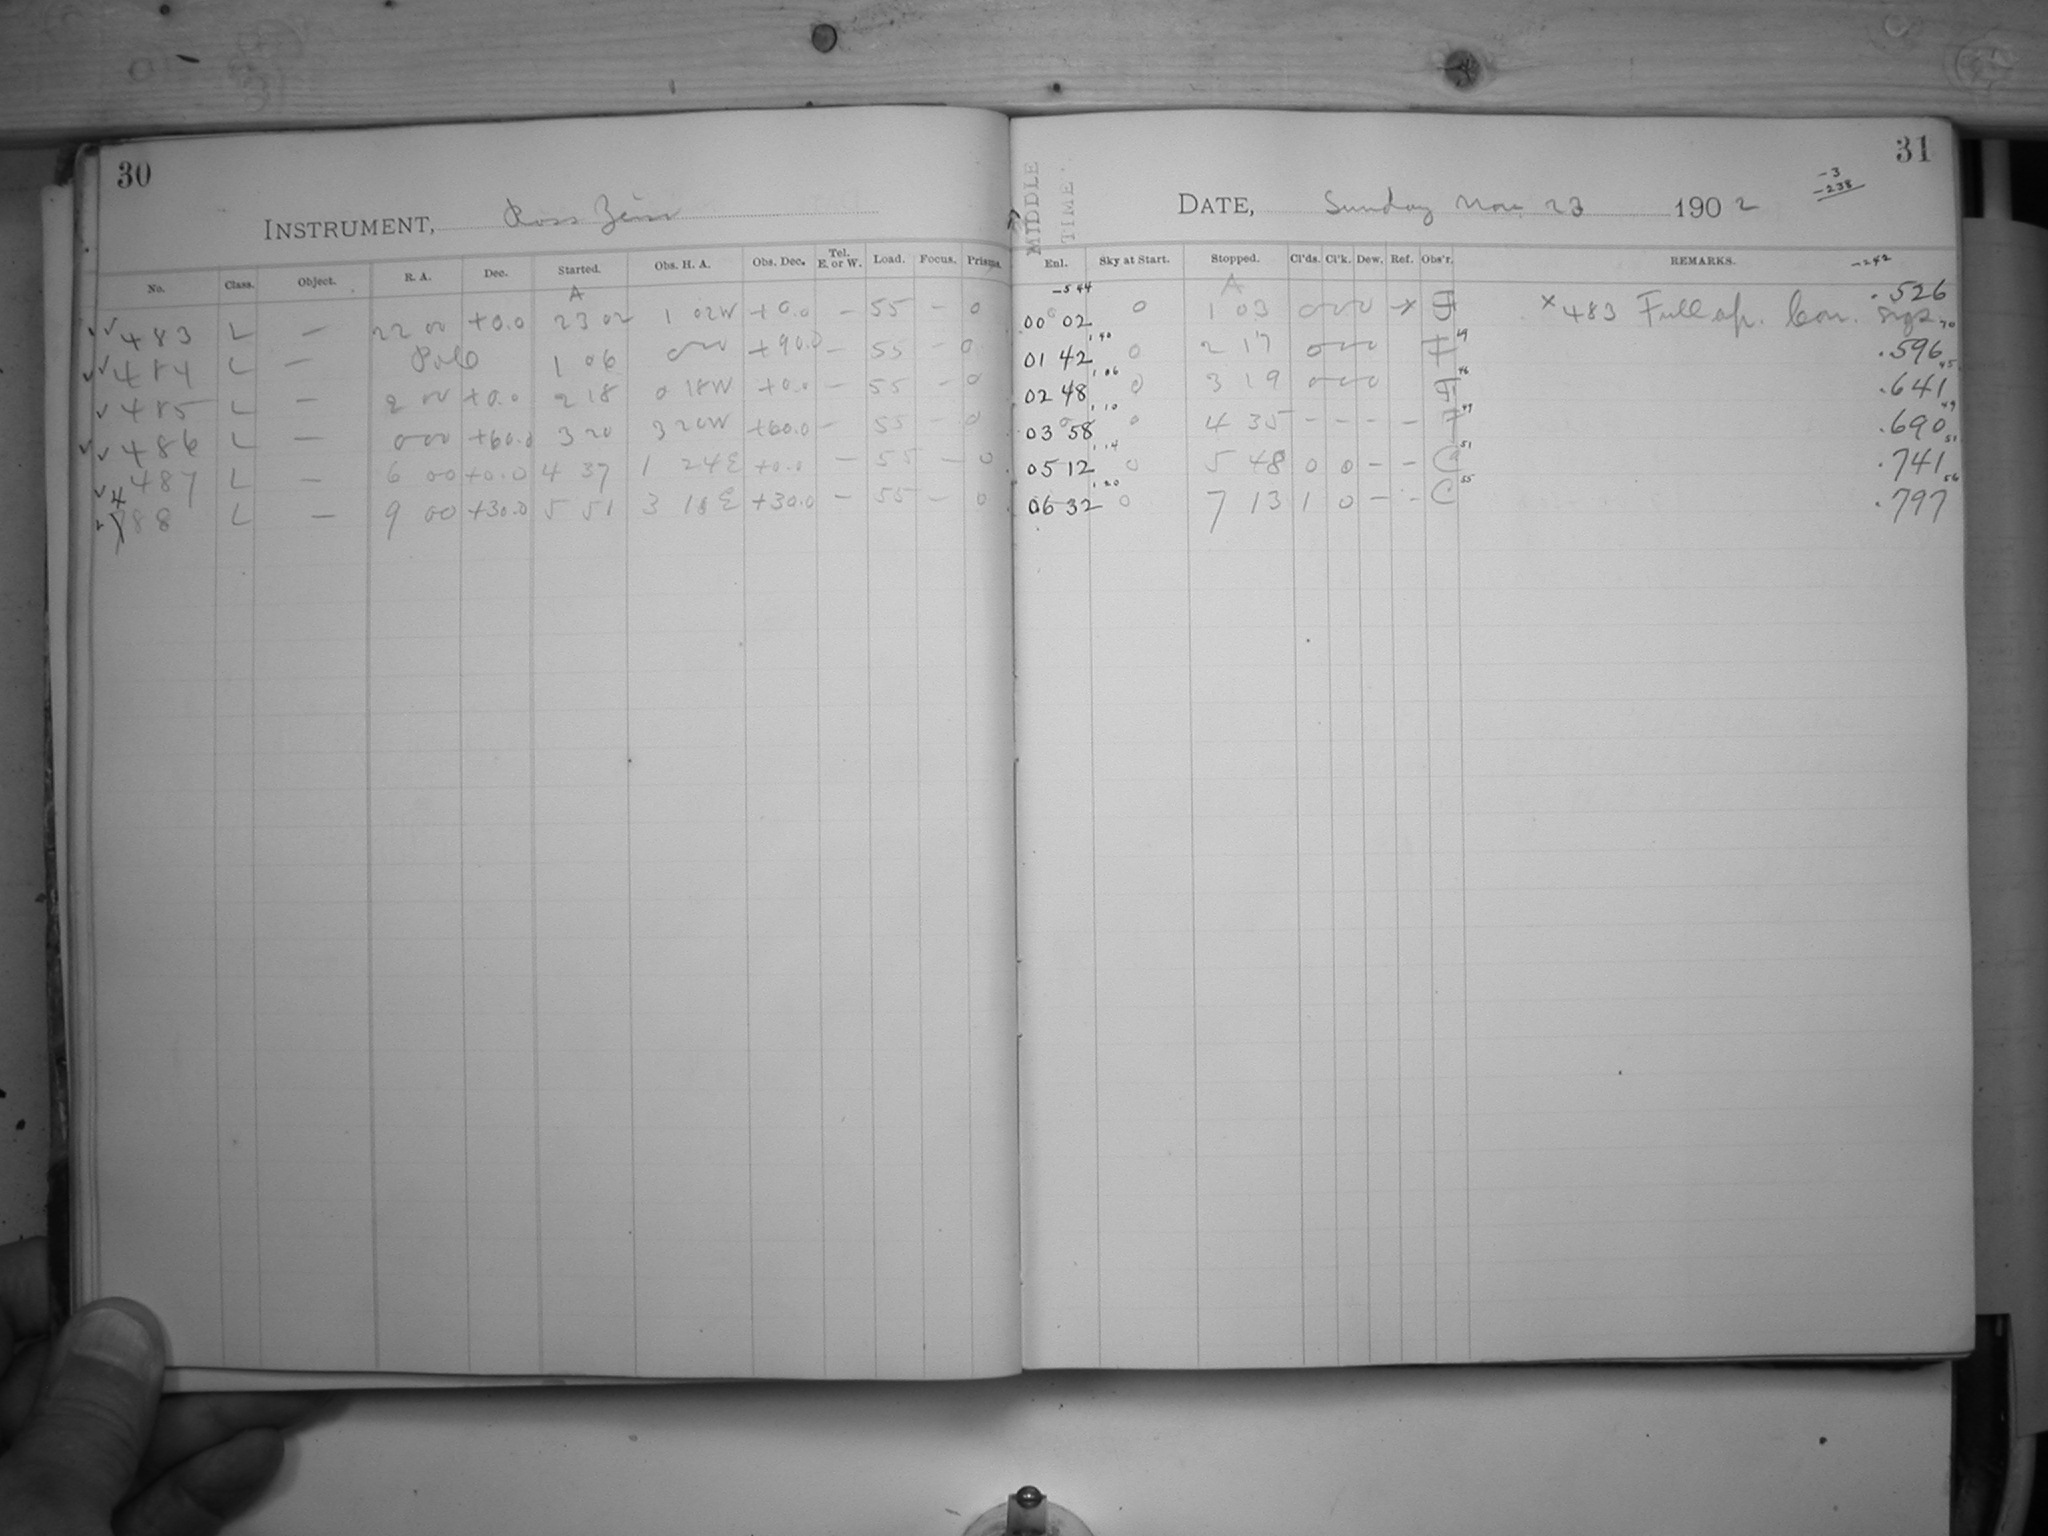 30
INSTRUMENT, Ross Zeiss
No. Class. Object. R. A. Dec. Started. Obs. H. A. Obs. Dec. Tel. E. or W. Load. Focus. Prisms.
A
✓✓ 483 L — 22 00 +0.0 23 02 1 02W +0.0 — 55 — 0
✓✓ 484 L — Pole 1 06 0 00 +90.0 — 55 — 0
✓ 485 L — 2 00 +0.0 2 18 0 18W +0.0 — 55 — 0
✓✓ 486 L — 0 00 +60.0 3 20 3 20W +60.0 — 55 — 0
✓ 487 L — 6 00 +0.0 4 37 1 24E +0.0 — 55 — 0
4
788 L — 9 00 +30.0 5 51 3 18E +30.0 — 55 — 0
31
-3
-238
MIDDLE TIME.
DATE, Sunday Nov. 23 1902
Enl. Sky at Start. Stopped. Cl'ds. Cl'k. Dew. Ref. Obs'r. REMARKS. -242
-544 A
00 02 0 1 03 0 0 0 x F x 483 Full ap. Con. .526
01 42 1 40 0 2 17 0 0 0 F 69 .596 70
02 48 1 06 0 3 19 0 0 0 F 46 .641 45
03 58 1 10 0 4 35 - - - - F 49 .690 49
05 12 1 14 0 5 48 0 0 - - C 51 .741 51
06 32 1 20 0 7 13 1 0 - - C 55 .797 56